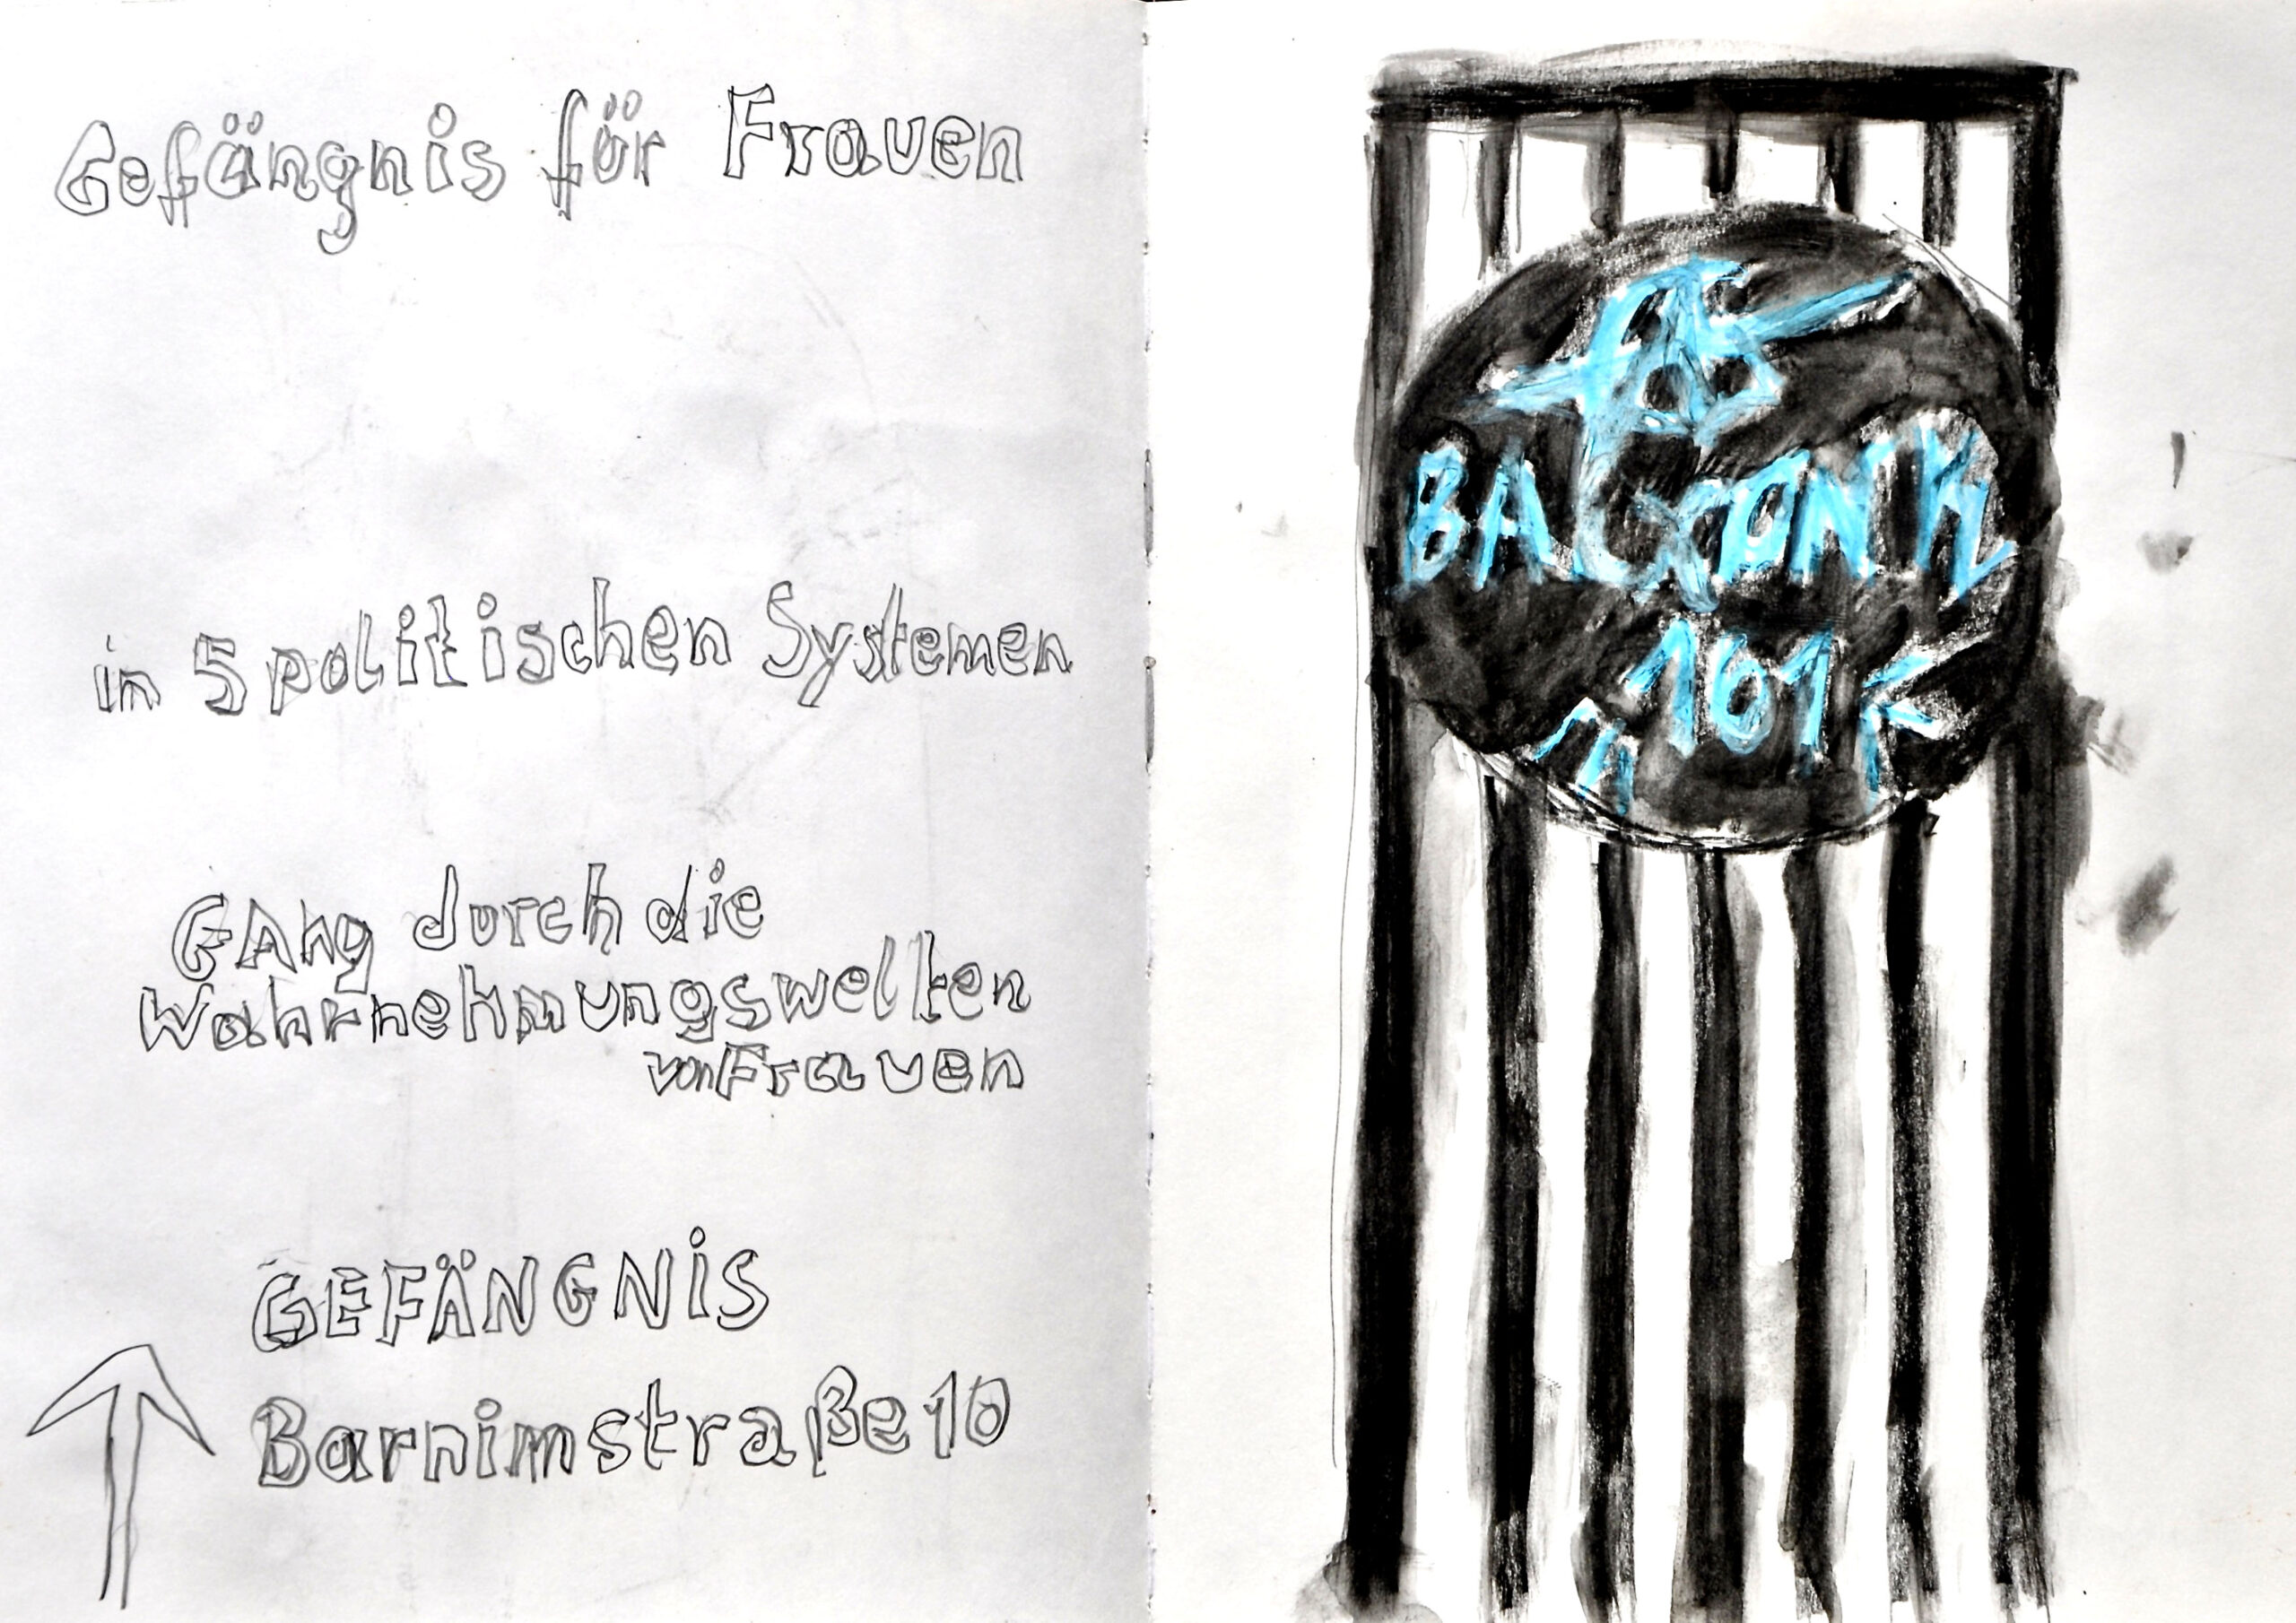 Gefängnis für Frauen
in 5 politischen Systemen
GAng durch die
Wahrnehmungswelten
von Frauen
GEFÄNGNiS
Barnimstraße 10
161